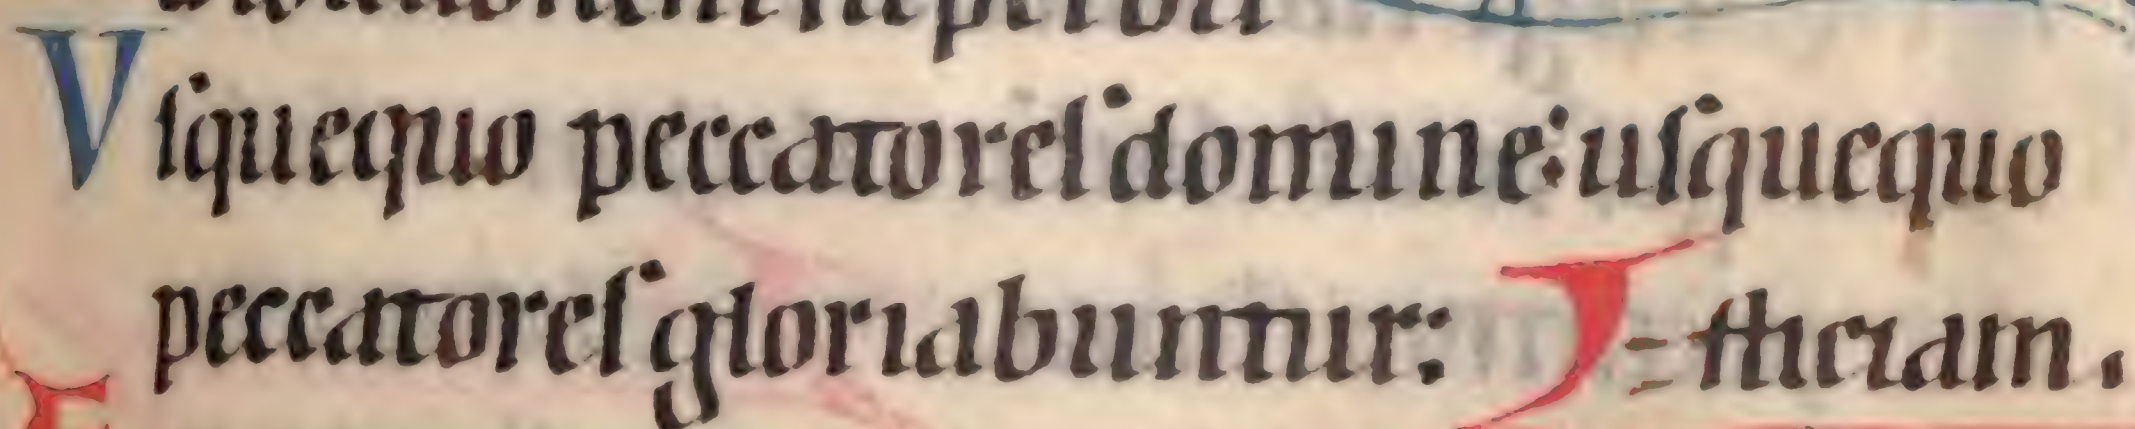 Vſquequo peccatoreſ domine: uſquequo
peccatoreſ gloriabuntur: = ſticiam.